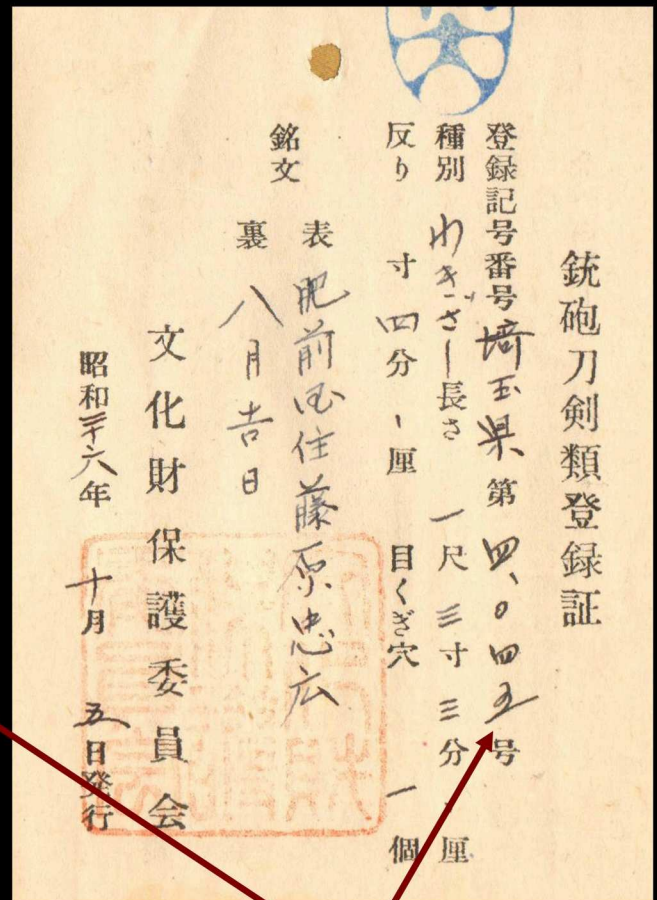 銃砲刀剣類登録証
登録記号番号 埼玉県 第 四、〇四五 号
種別 わきざし 長さ 一尺 三寸 三分 厘
反り 寸 四分 厘 目くぎ穴 一個
銘文
表 肥前国住藤原忠広
裏 八月吉日
文化財保護委員会
昭和二十六年 十月 五日発行